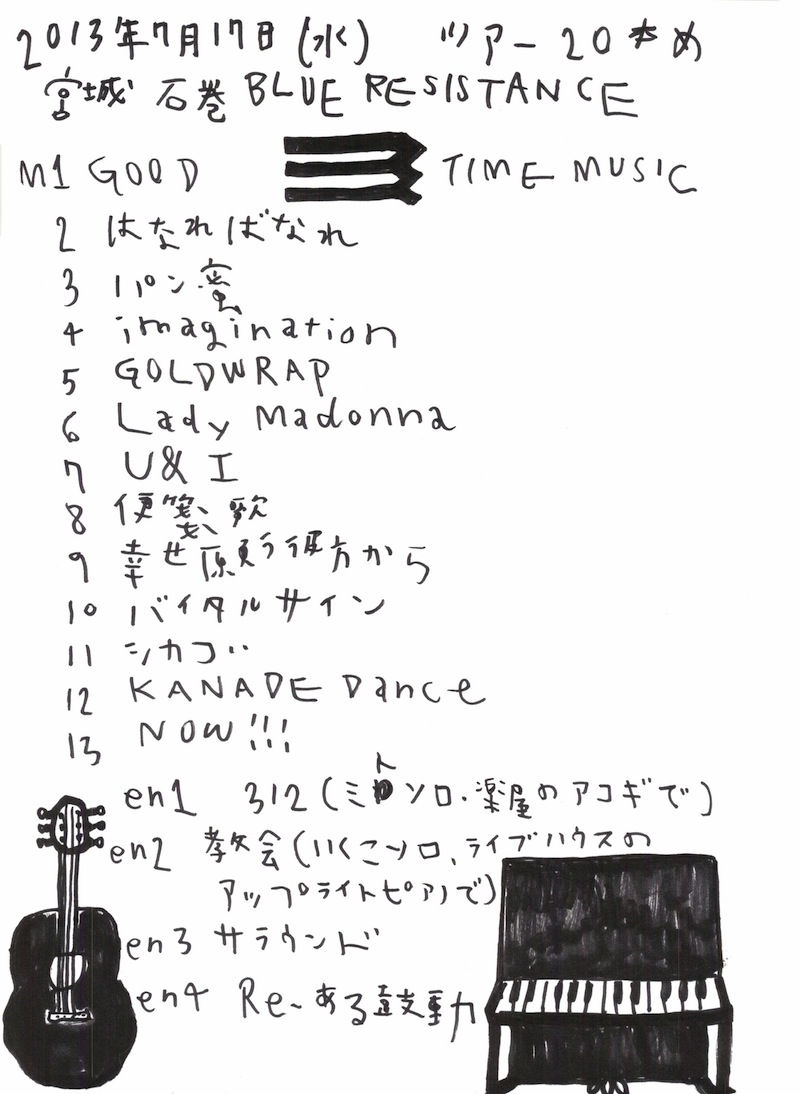 2013年7月17日(水) ツアー20本め
宮城 石巻 BLUE RESISTANCE
M1 GOOD TIME MUSIC
2 はなればなれ
3 パン蜜
4 imagination
5 GOLDWRAP
6 Lady Madonna
7 U&I
8 便箋歌
9 幸せ原野行彼方から
10 バイタルサイン
11 シカゴ
12 KANADE Dance
13 NOW!!!
en1 312(ミトソロ、楽屋のアコギで)
en2 教会(いくこソロ、ライブハウスの
アップライトピアノで)
en3 サラウンド
en4 Re-ある鼓動